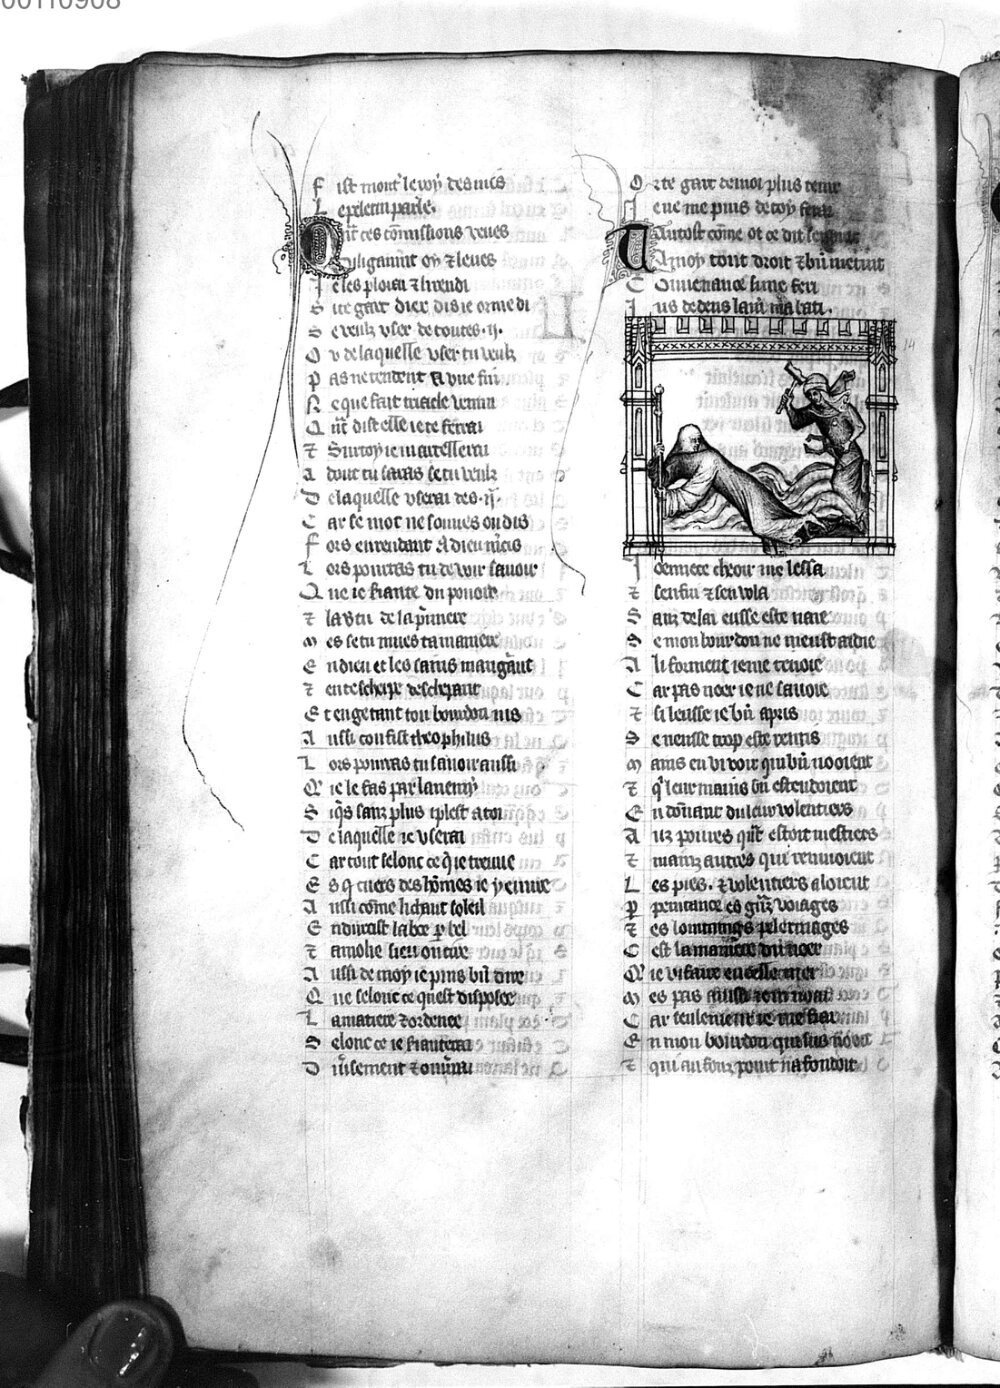 00110908
Fist mont le roy des nues
Le pelerin parle.
Qnt ces comissions veues
Diligaument oy & leues
Je les ploiai & li rendi
Si te gart diex dis ie or me di
Se veulz vser de toutes .ij.
Ou de laquelle vser tu veulz
Pas ne tendent a vne fin
Ne que fait triacle venin
Qnt dist elle ie te ferrai
& Sur toy ie martellerai
Adont tu saras se tu veulz
De laquelle vserai des .ij.
Car se mot ne sonnes ou dis
Fors en rendant a dieu mcis
Lors pourras tu de voir sauoir
Que ie frapte du pouoir
& la vtu de la pmiere
Mes se tu mues ta maniere
En dieu et les sains maugraut
& en tescherpe descherpant
Et en getant ton bourdon ius
Aussi con fist theophilus
Lors pourras tu sauoir aussi
Q ie le fas par lanemy
Si qs sanz plus il plest a toi
De laquelle ie vserai
Car tout selonc ce q ie treuue
Es q cuers des homes ie y euure
Aussi come li chaut soleil
En durcist la boe p bel
& amolie sieu ou cire
Aussi de moy ie puis bn dire
Que selonc ce quest disposee
La matiere & ordenee
Selonc ce ie fraperai
Diusement & ouurrai
Or te gart de moi plus tenir
Je ne me puis de toy ferir
Tantost come ot ce dit le
A moy tout droit & bn me
Couenance fu me feri
Jus dedens la m abati.
14
J denniere cheoir me lessa
& senfui & sen vola
Sanz delai eusse este naie
Se mon bourdon ne meust aidie
A li forment ie me tenoie
Car pas noer ie ne sauoie
& si leusse ie bn apris
Se neusse trop este repris
Mains en vi voir qui bn nooient
& q leur mains bn estendoient
En donnant du leur volentiers
Auz poures qnt estoit mestiers
& mainz autres qui renuoioient
Les pies. & volentiers aloient
P penitance es gnz voiages
& es lointaings pelerinages
Cest la maniere du noer
Q ie vi faire en celle mer
Mes pas aussi ie ne noai
Car seulement ie me fiai
En mon bourdon qui sus
& qui au fonz point nafondoit